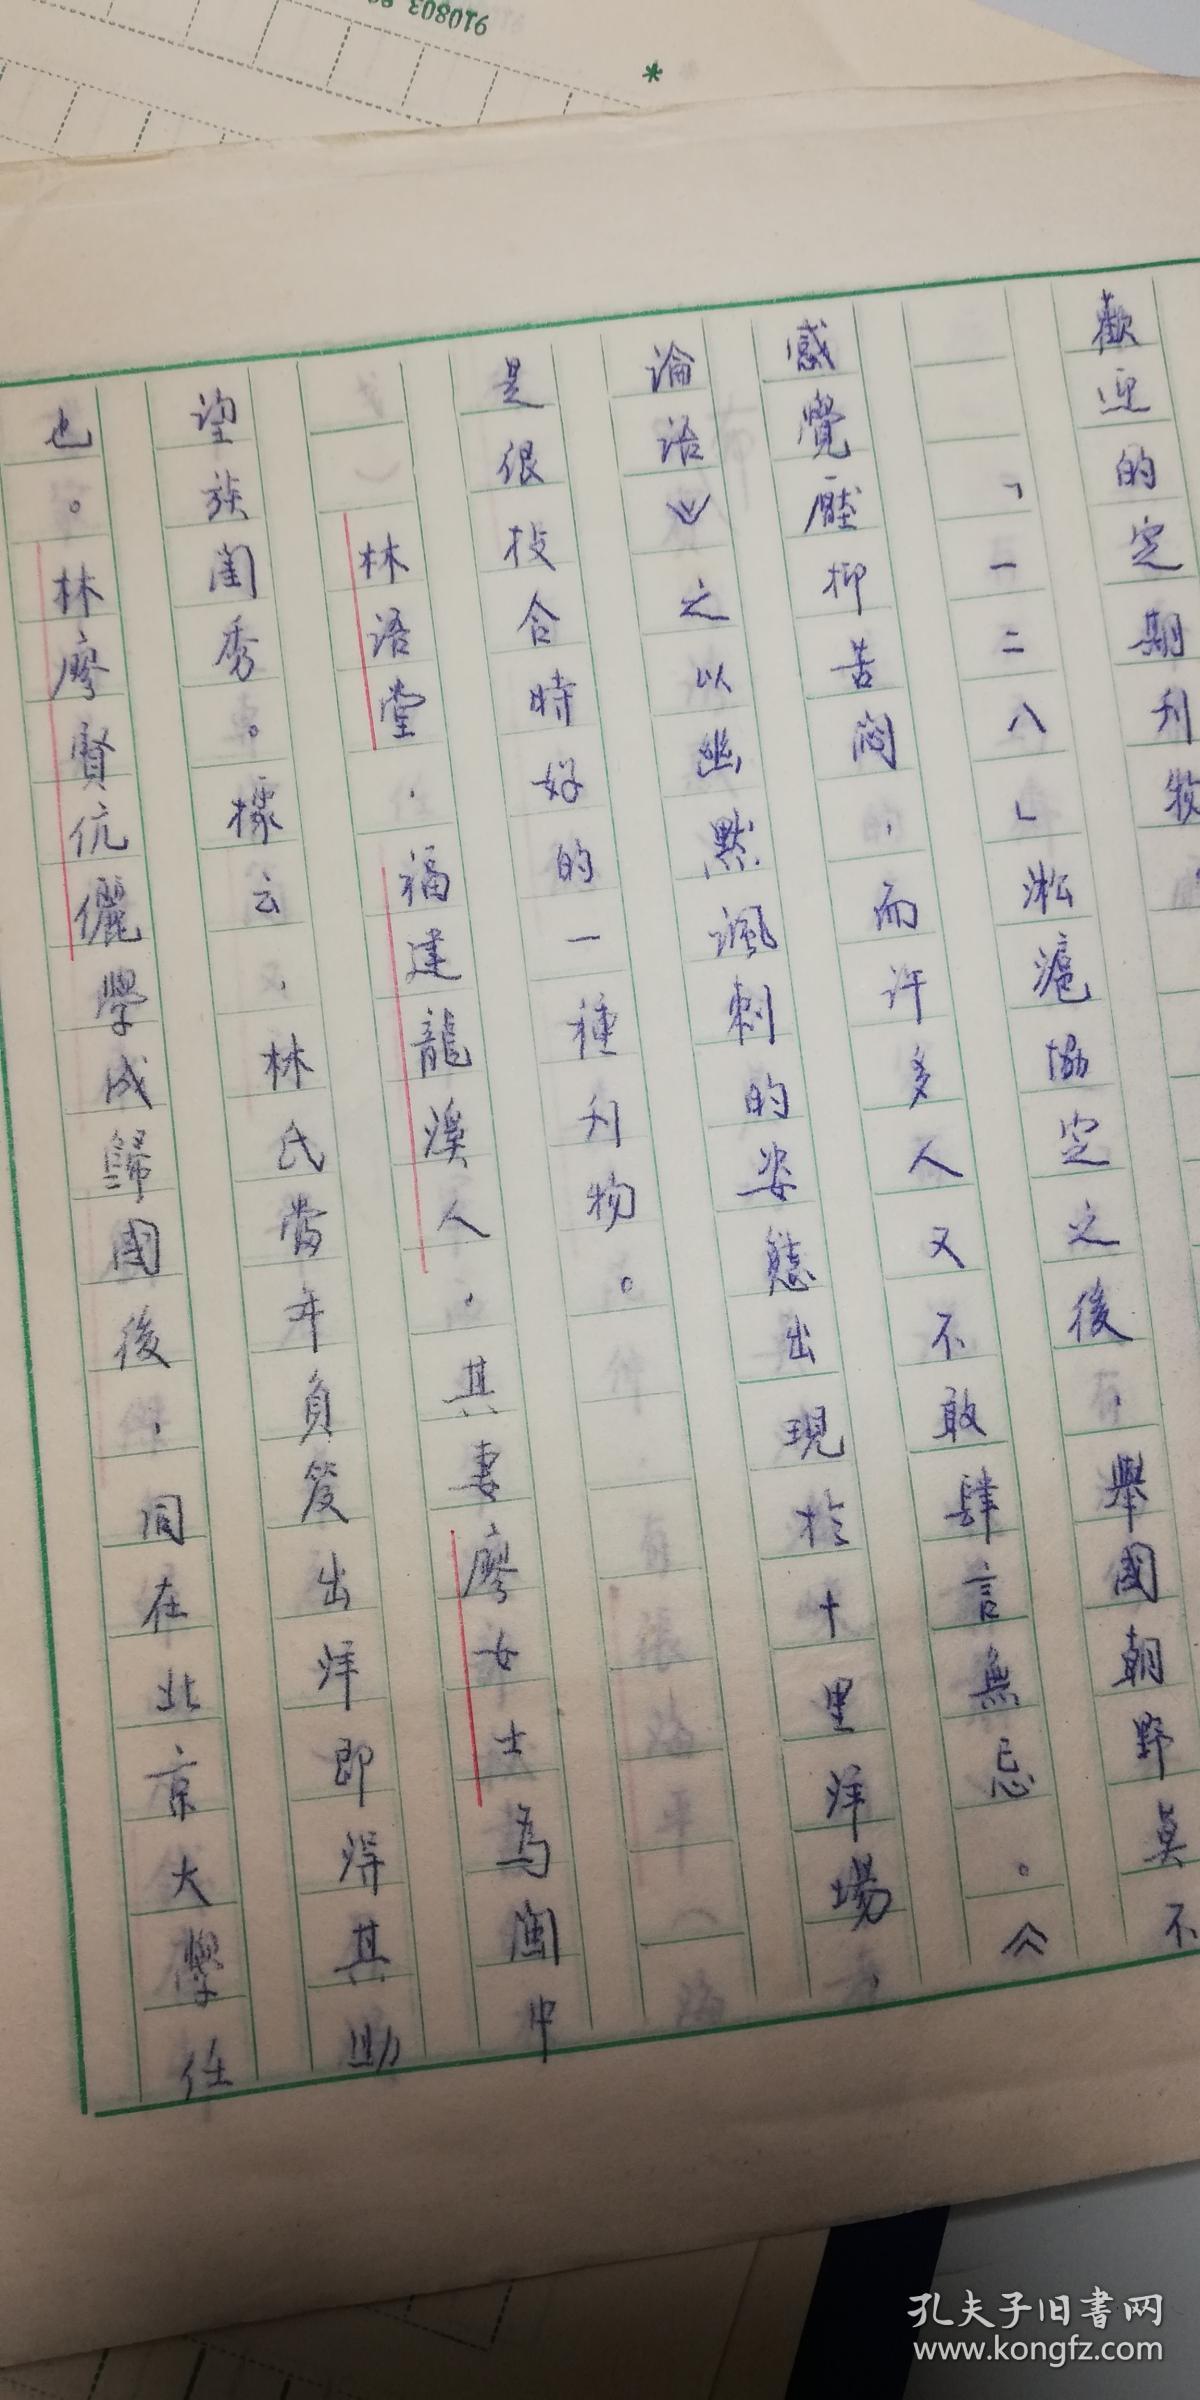 歡迎的定期刊物
「一二八」淞滬協定之後,舉國朝野莫不
感覺壓抑苦悶,而许多人又不敢肆言無忌。《
論语》之以幽默諷刺的姿態出現於十里洋場,
是很投合時好的一種刊物。
林语堂,福建龍溪人,其妻廖女士為閩中
望族閨秀。據云,林氏當年負笈出洋即得其助
也。林廖賢伉儷學成歸國後,同在北京大學任
910803
孔夫子旧書网
www.kongfz.com